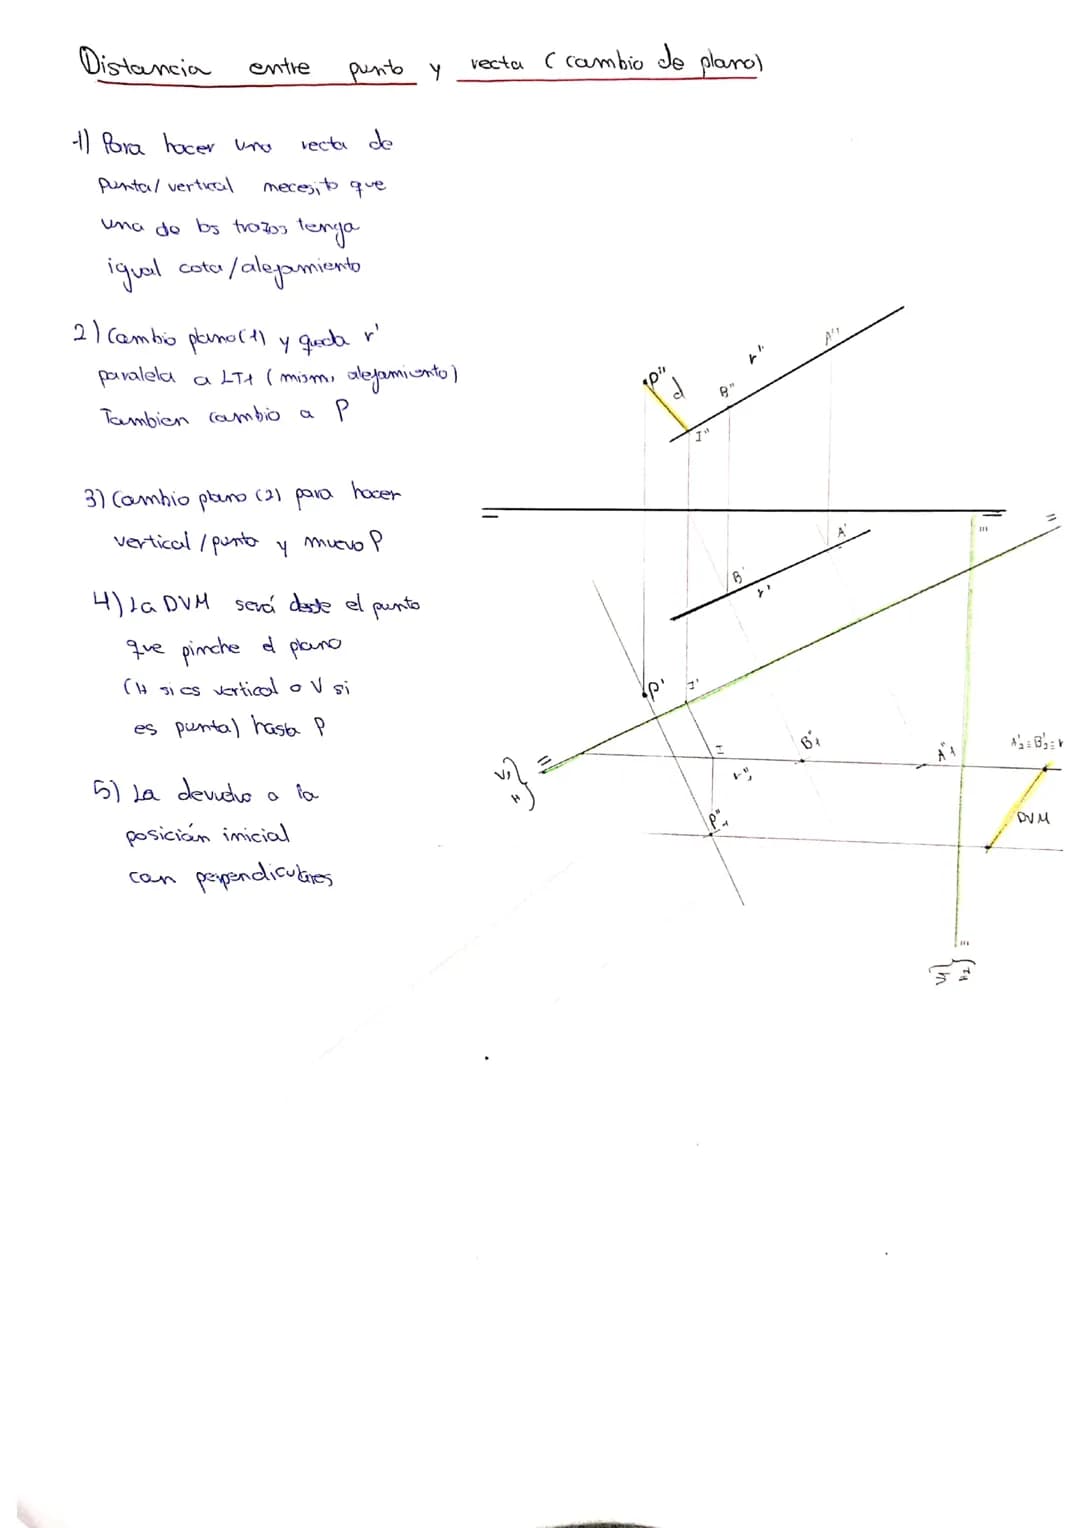 Distancia entre punto y recta (cambio de plano)
1) Para hacer una recta de
punta/vertical necesito que
una de los trazos tenga
igual cota/alejamiento
2) Cambio plano(1) y queda r'
paralela a LT1 (mismo alejamiento)
Tambien cambio a P
3) Cambio plano (2) para hacer
vertical/punto y muevo P
4) La DVM será desde el punto
que pinche el plano
(H si es vertical o V si
es punta) hasta P
5) La devuelvo a la
posición inicial
con perpendiculares
A''
r''
P''
d
B''
I''
A'
B'
r'
P'
I'
I
B''1
A''1
A'2≡B'2≡r
r''1
V1
H
P''1
DVM
V1
H2